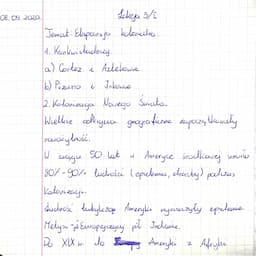 08.09.2020. Lekcja 3/I
Temat: Ekspansja kolonialna.
1. Konkwistadorzy.
a) Cortez i Aztekowie
b) Pizarro i Inkowie
2. Kolonizacja Nowego Świata.
Wielkie odkrycia geograficzne zapoczątkowały
nowożytność.
W ciągu 50 lat w Ameryce środkowej
80%-90% ludności (epidemie, choroby) podczas
kolonizacji.
ludność tubylczą Ameryki epidemie
Metys - pół Europejczyk pół Indianin.
Do XIX w. do Ameryki z Afryki